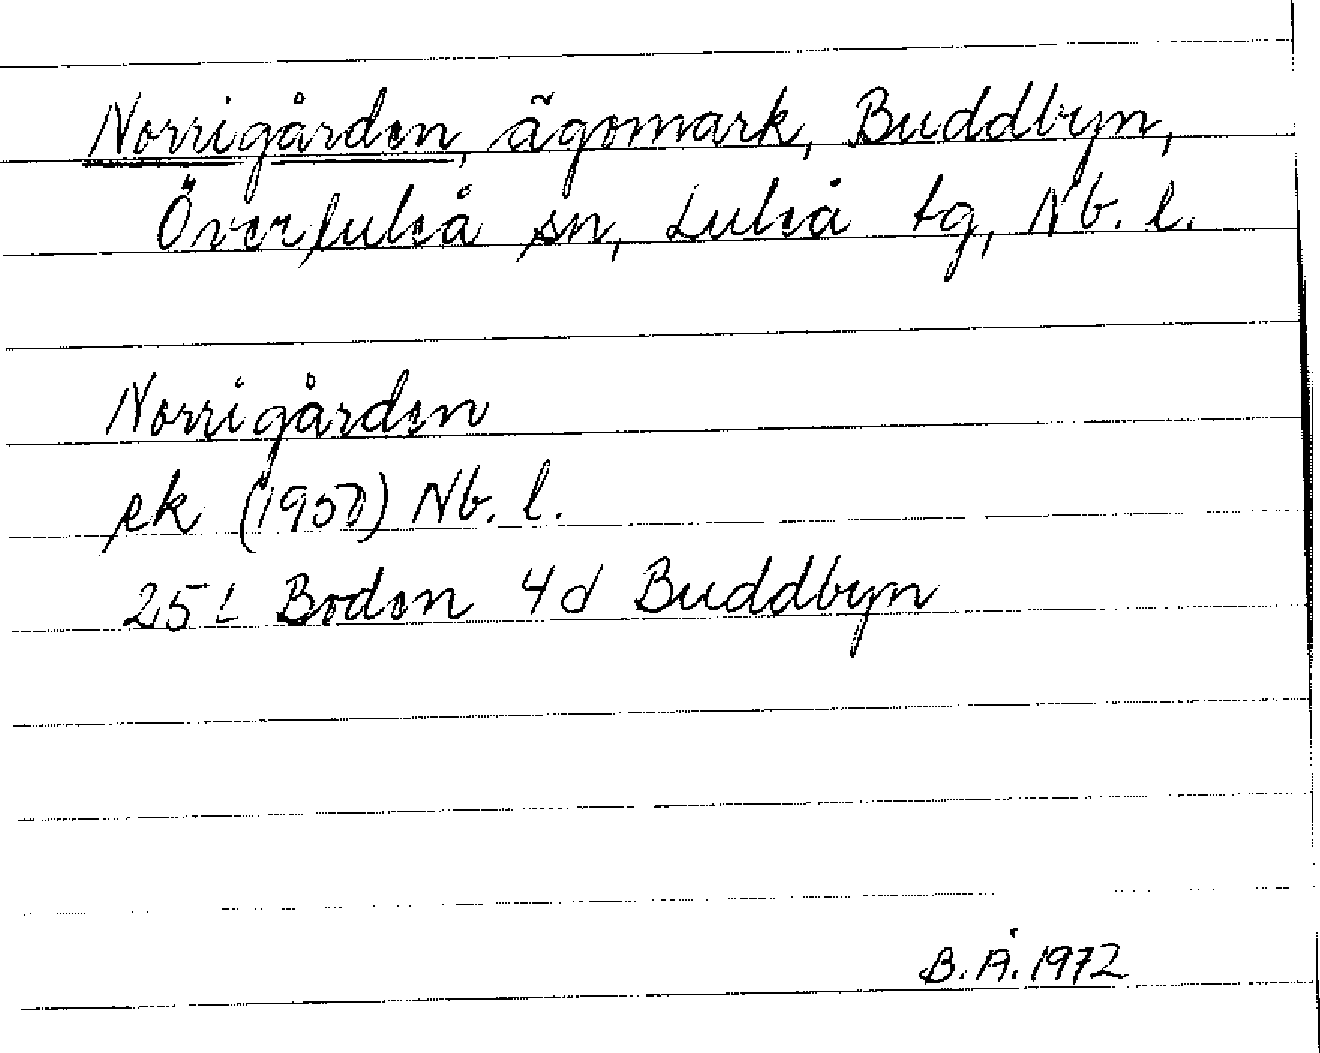 Norrigården, ägomark, Buddbyn,
Överluleå sn, Luleå tg, Nb. l.
Norrigården
ek (1950) Nb. l.
25L Boden 4d Buddbyn
B. Å. 1972